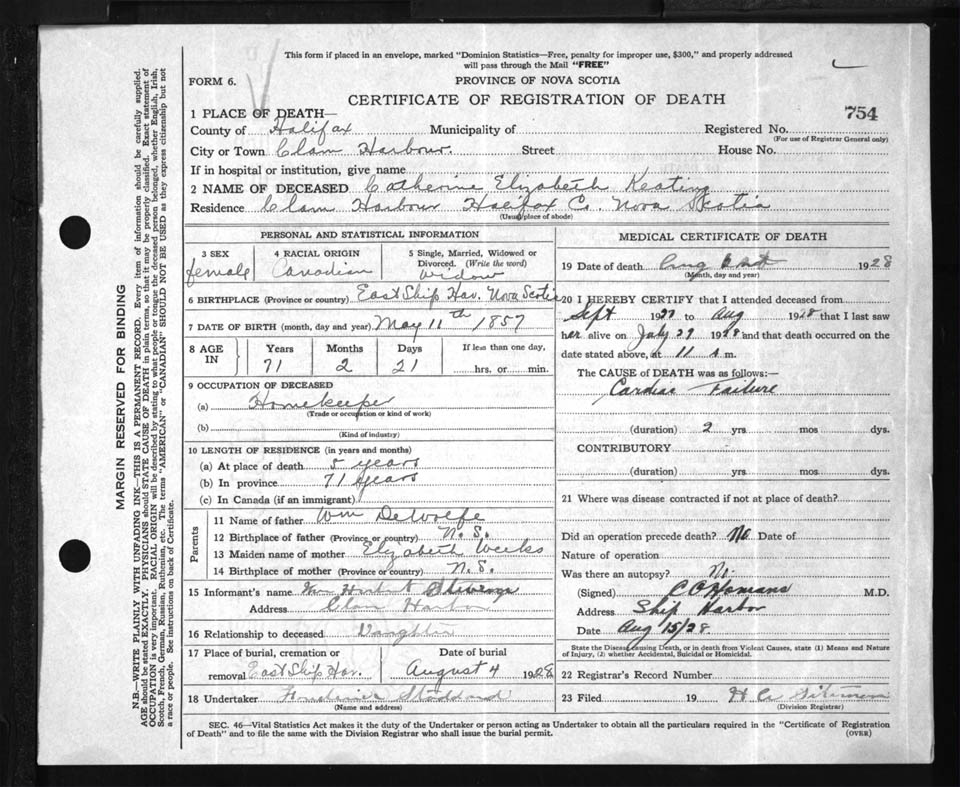 This form if placed in an envelope, marked "Dominion Statistics—Free, penalty for improper use, $300," and properly addressed
will pass through the Mail "FREE"
FORM 6.
PROVINCE OF NOVA SCOTIA
CERTIFICATE OF REGISTRATION OF DEATH
754
1 PLACE OF DEATH—
County of Halifax Municipality of Registered No.
(For use of Registrar General only)
City or Town Clam Harbour. Street House No.
If in hospital or institution, give name
2 NAME OF DECEASED Catherine Elizabeth Keating
Residence Clam Harbour Halifax Co. Nova Scotia
(Usual place of abode)
PERSONAL AND STATISTICAL INFORMATION
3 SEX 4 RACIAL ORIGIN 5 Single, Married, Widowed or
Divorced. (Write the word)
female Canadian Widow
6 BIRTHPLACE (Province or country) East Ship Har. Nova Scotia
7 DATE OF BIRTH (month, day and year) May 11th 1857
8 AGE IN Years Months Days If less than one day,
71 2 21 hrs. or min.
9 OCCUPATION OF DECEASED
(a) Homekeeper
(Trade or occupation or kind of work)
(b)
(Kind of industry)
10 LENGTH OF RESIDENCE (in years and months)
(a) At place of death 5 years
(b) In province 71 years
(c) In Canada (if an immigrant)
Parents
11 Name of father Wm DeWolfe
12 Birthplace of father (Province or country) N. S.
13 Maiden name of mother Elizabeth Weeks
14 Birthplace of mother (Province or country) N. S.
15 Informant's name Herbert
Address Clam Harbor
16 Relationship to deceased Daughter
17 Place of burial, cremation or Date of burial
removal East Ship Har. August 4 1928
18 Undertaker Stoddard
(Name and address)
MEDICAL CERTIFICATE OF DEATH
19 Date of death Aug 1st 1928
(Month, day and year)
20 I HEREBY CERTIFY that I attended deceased from
Sept 1927 to Aug 1928 that I last saw
her alive on July 29 1928 and that death occurred on the
date stated above, at 11 A m.
The CAUSE of DEATH was as follows:—
Cardiac Failure
(duration) 2 yrs mos dys.
CONTRIBUTORY
(duration) yrs. mos dys.
21 Where was disease contracted if not at place of death?
Did an operation precede death? No Date of
Nature of operation
Was there an autopsy? No
(Signed) C C Homans M.D.
Address Ship Harbor
Date Aug 15/28
State the Disease causing Death, or in death from Violent Causes, state (1) Means and Nature
of Injury, (2) whether Accidental, Suicidal or Homicidal.
22 Registrar's Record Number
23 Filed 19
(Division Registrar)
SEC. 46—Vital Statistics Act makes it the duty of the Undertaker or person acting as Undertaker to obtain all the particulars required in the "Certificate of Registration
of Death" and to file the same with the Division Registrar who shall issue the burial permit. (OVER)
MARGIN RESERVED FOR BINDING
N.B.—WRITE PLAINLY WITH UNFADING INK—THIS IS A PERMANENT RECORD. Every item of information should be carefully supplied.
AGE should be stated EXACTLY. PHYSICIANS should STATE CAUSE OF DEATH in plain terms, so that it may be properly classified. Exact statement of
OCCUPATION is very important. RACIAL ORIGIN will be described by stating to what people or tongue the deceased person belonged, whether English, Irish,
Scotch, French, German, Russian, Ruthenian, etc. The terms "AMERICAN" or "CANADIAN" SHOULD NOT BE USED as they express citizenship but not
a race or people. See instructions on back of Certificate.